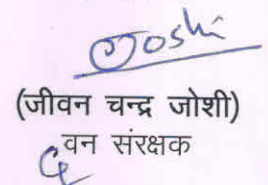 Joshi
(जीवन चन्द्र जोशी)
वन संरक्षक